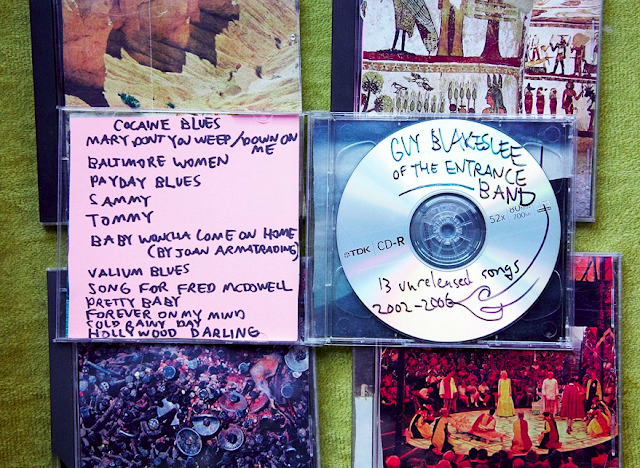 COCAINE BLUES
MARY DONT YOU WEEP/DOWN ON
ME
BALTIMORE WOMEN
PAYDAY BLUES
SAMMY
TOMMY
BABY WONCHA COME ON HOME
(BY JOAN ARMATRADING)
VALIUM BLUES
SONG FOR FRED MCDOWELL
PRETTY BABY
FOREVER ON MY MIND
COLD RAINY DAY
HOLLYWOOD DARLING
GUY BLAKESLEE
OF THE ENTRANCE
BAND
52x
TDK CD-R
13 unreleased songs
2002-2006